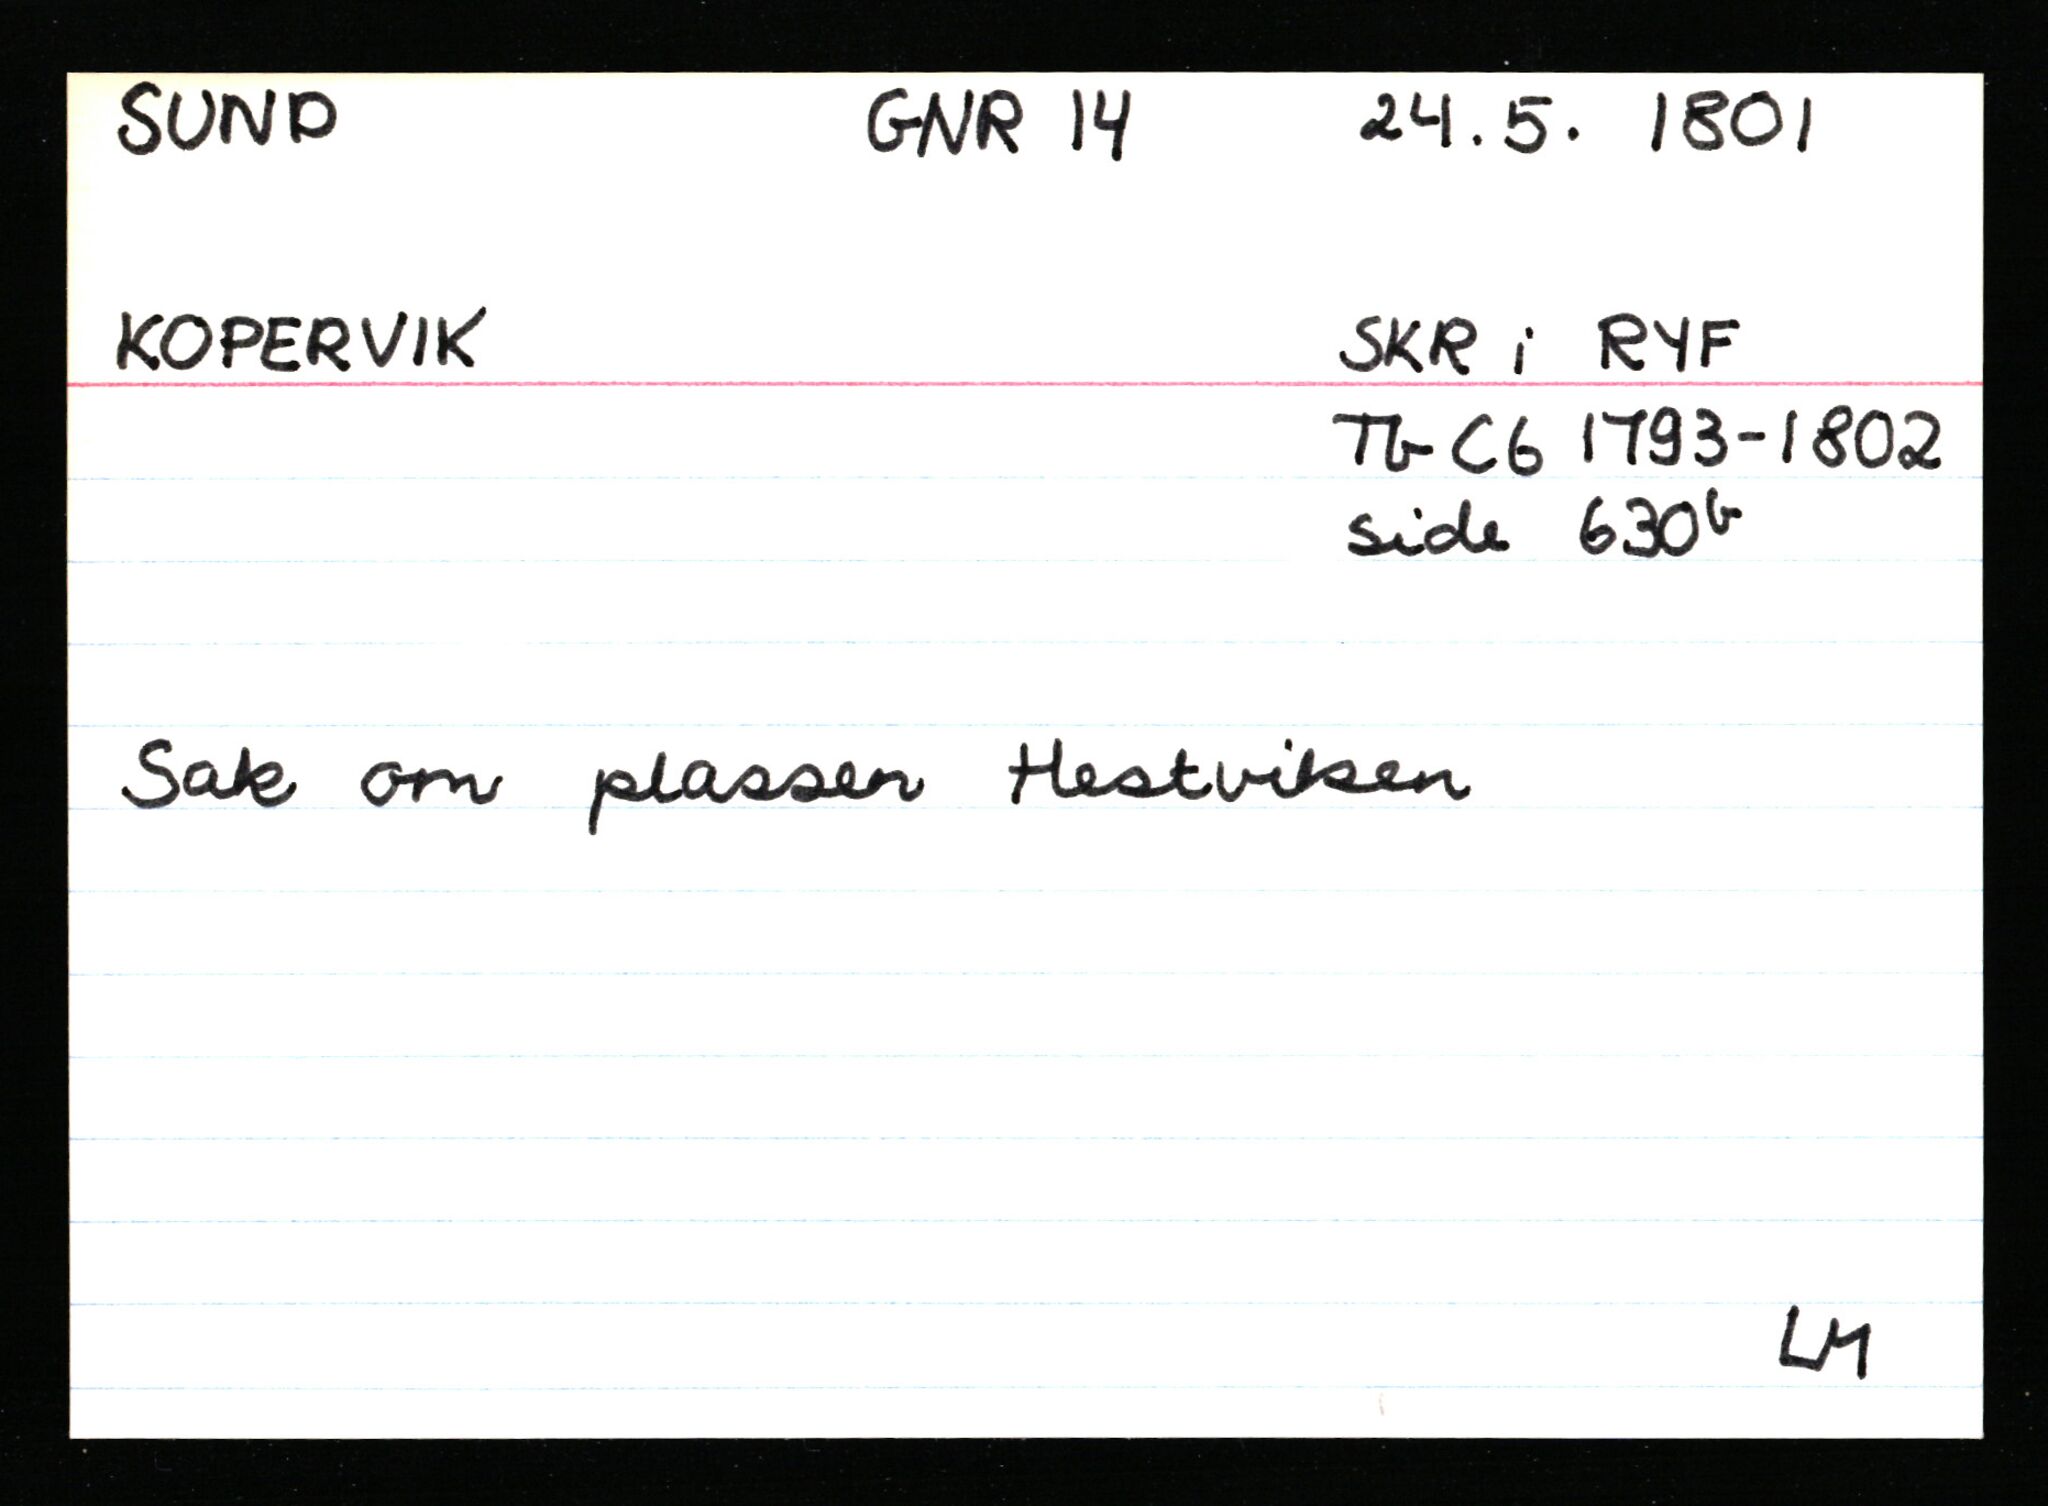 SUND GNR 14 24.5. 1801
KOPERVIK SKR i RYF
Tb C6 1793-1802
side 630b
Sak om plassen Hestviken
LM